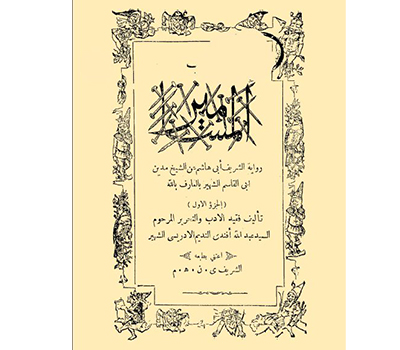 المسامير
رواية الشريف أبي هاشم ابن الشيخ مدين
ابي القاسم الشهير بالعارف بالله
(الجزؤ الاول)
تأليف فقيد الادب والتحرير المرحوم
السيد عبد الله أفندي النديم الادريسي الشهير
اعتنى بطبعه
الشريف ى . ن . ه . م